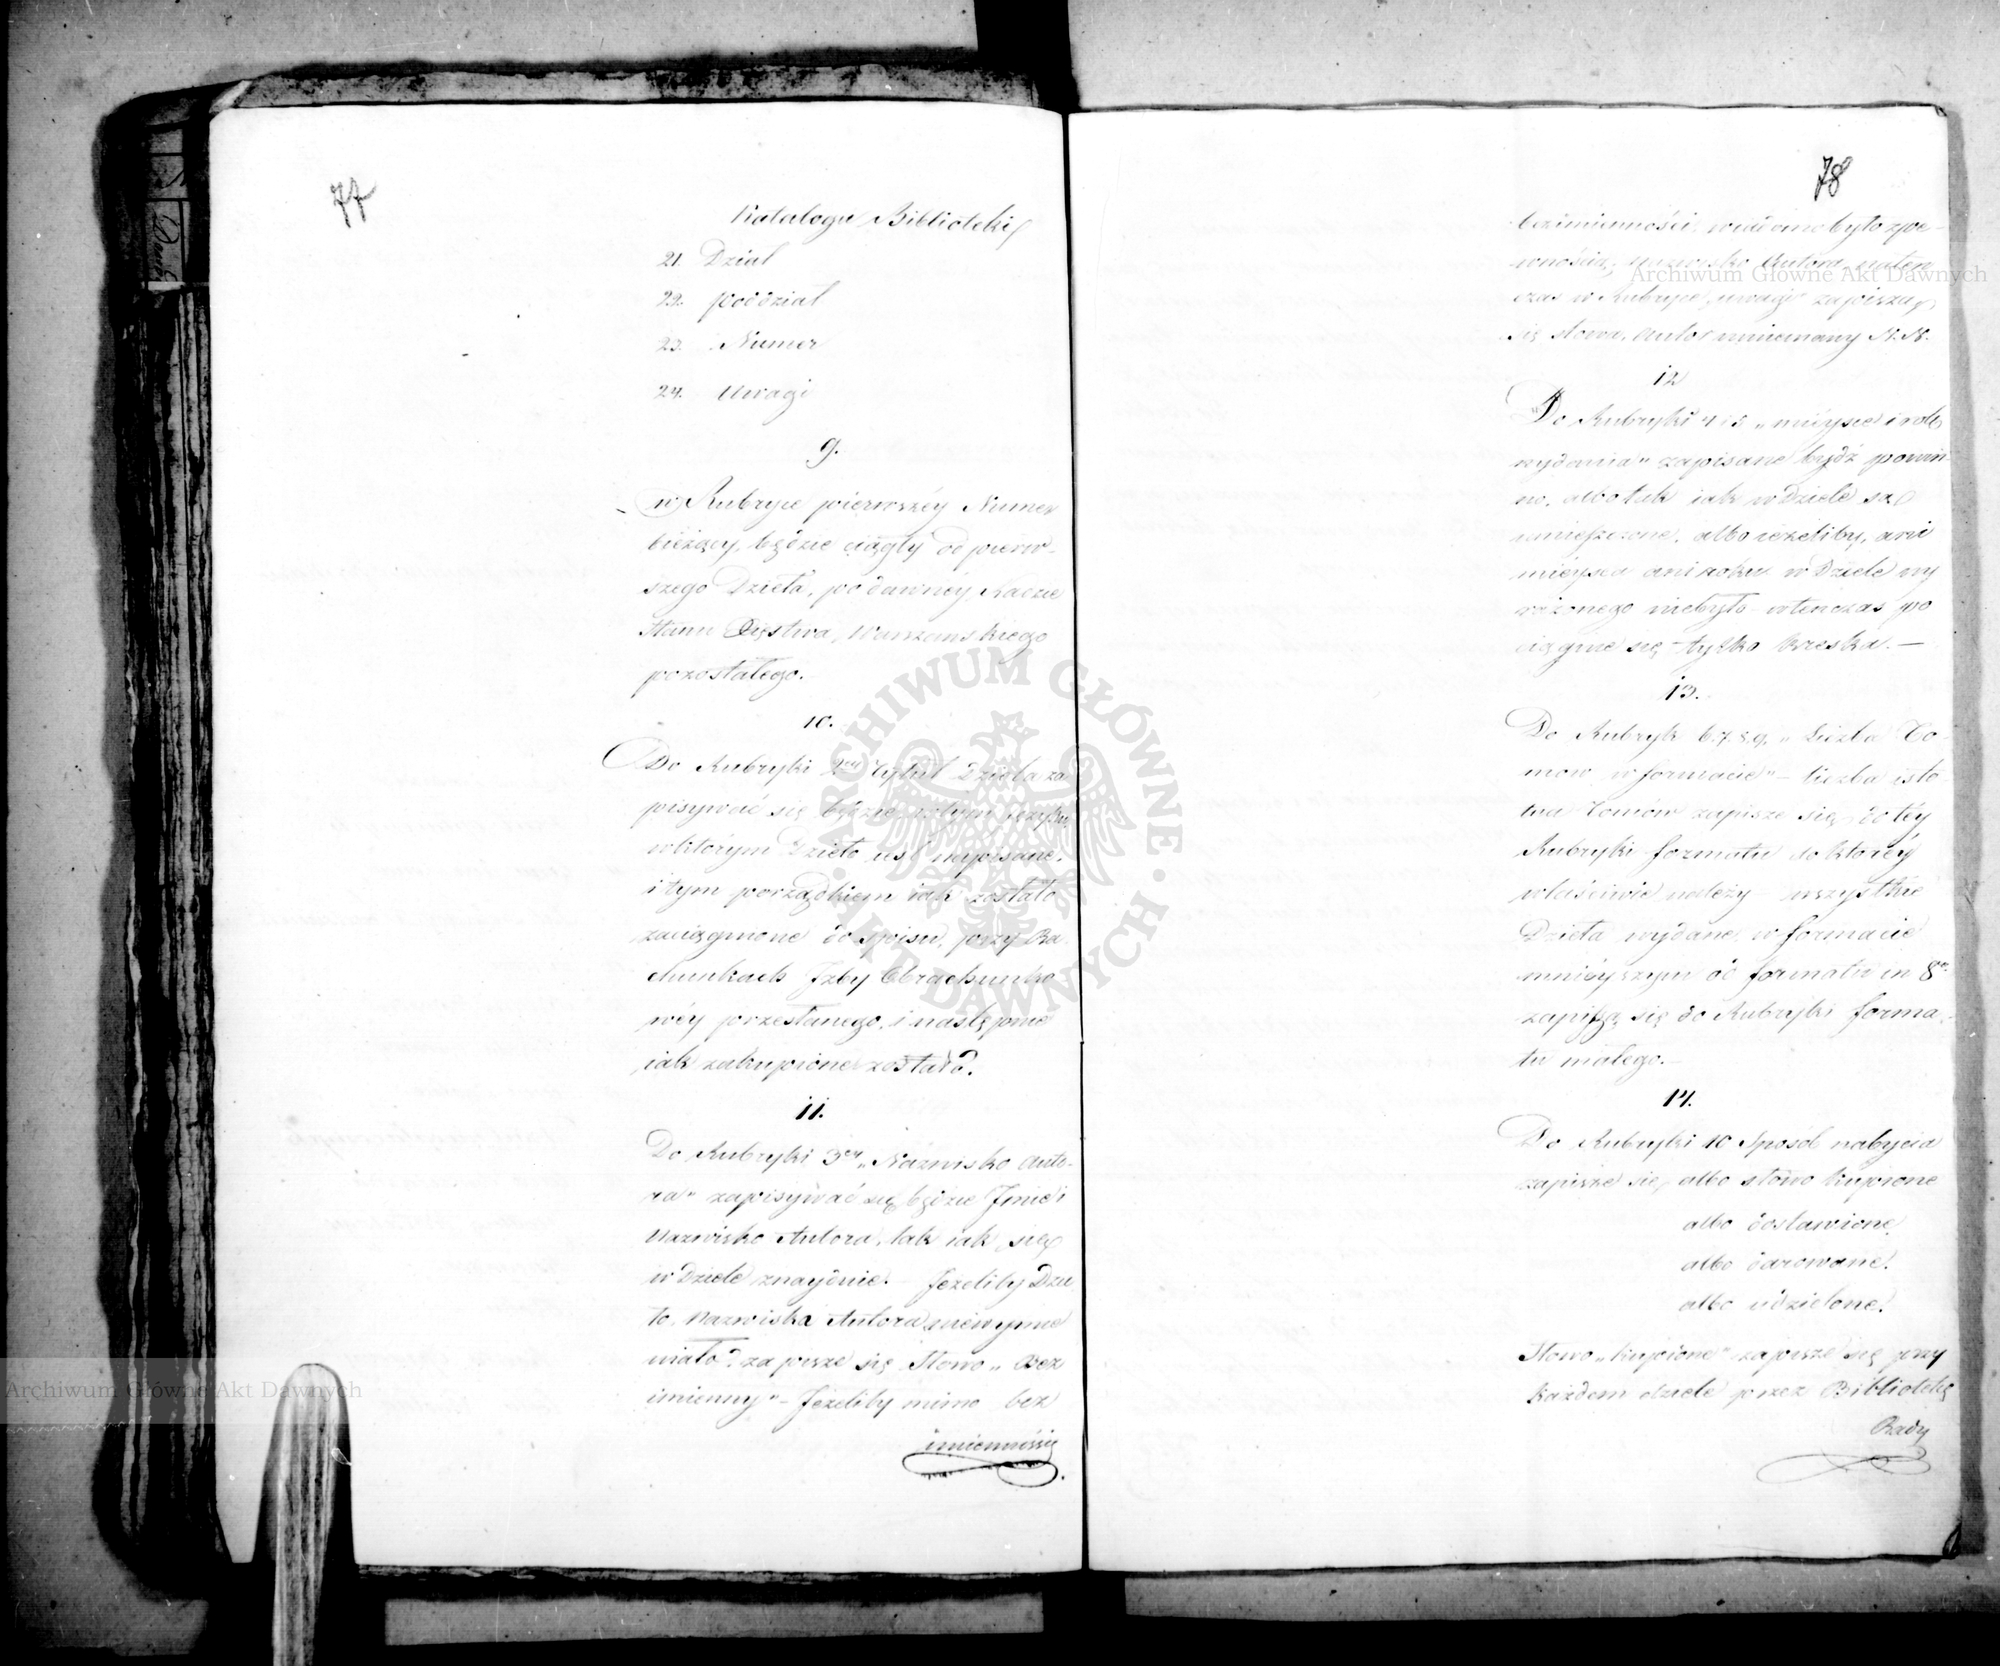 77
Katalogu Biblioteki
21. Dział
22. poddział
23. Numer
24. Uwagi
9.
w Rubryce pierwszéy Numer
bieżący, będzie ciągły od pierw-
szego Dzieła, po dawnéy Radzie
Stanu Xięstwa Warszawskiego
pozostałego.
10.
Do Rubryki 2éy tytuł Dzieła za
pisywać się będzie w tym języku,
w którym Dzieło jest wypisane,
i tym porządkiem iak zostało
zaciągnione do spisu, przy Ra-
chunkach Izby Obrachunko
wéy przesłanego, i następnie
iak zakupione zostało.
11.
Do Rubryki 3éy „Nazwisko Auto-
ra" zapisywać się będzie Imie i
Nazwisko Autora, tak iak się
w Dziele znayduie. – Jeżeliby Dzie
ło, Nazwiska Autora niewymie
niało, zapisze się Słowo „ Bez
imienny" – Jeżeliby mimo bez
imienności
78
bezimienności, wiadome było z pe-
wnością, nazwisko Autora, naten
czas w Rubryce „uwagi" zapiszą
się słowa, Autor mniemany N. N.
12
Do Rubryki 4 i 5 „mieysce i rok
wydania" zapisane bydź powin-
no, albo tak iak w dziele są
umieszczone, albo ieżeliby, ani
mieysca ani roku w Dziele wy
rażonego niebyło – wtenczas po
ciągnie się tylko kreska. –
13.
Do Rubryk 6. 7. 8. 9. „ Liczba To-
mow w formacie" – liczba isto-
tna Tomów zapisze się do téy
Rubryki formatu do któréy
właściwie należy – wszystkie
Dzieła wydane w formacie
mnieyszym od formatu in 8vo
zapiszą się do Rubryki forma-
tu małego. –
14.
Do Rubryki 10 Sposób nabycia
zapisze się, albo słowo kupione
albo dostawione,
albo darowane,
albo udzielone,
Słowo „kupione" zapisze się przy
każdem dziele przez Bibliotekę
Rady
Archiwum Główne Akt Dawnych
Archiwum Główne Akt Dawnych
ARCHIWUM GŁÓWNE · AKT DAWNYCH ·